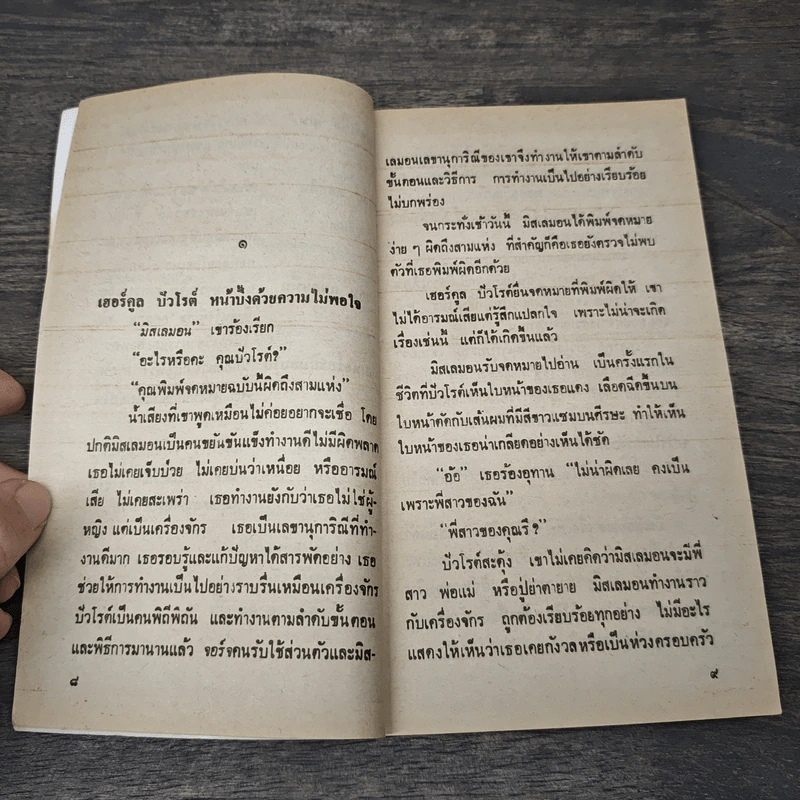 ๑
เฮอร์คูล ปัวโรต์ หน้าบึ้งด้วยความไม่พอใจ
“มิสเลมอน” เขาร้องเรียก
“อะไรหรือคะ คุณปัวโรต์?”
“คุณพิมพ์จดหมายฉบับนี้ผิดถึงสามแห่ง”
น้ำเสียงที่เขาพูดเหมือนไม่ค่อยอยากจะเชื่อ โดย
ปกติมิสเลมอนเป็นคนขยันขันแข็งทำงานดีไม่มีผิดพลาด
เธอไม่เคยเจ็บป่วย ไม่เคยบ่นว่าเหนื่อย หรืออารมณ์
เสีย ไม่เคยสะเพร่า เธอทำงานยังกับว่าเธอไม่ใช่ผู้-
หญิง แต่เป็นเครื่องจักร เธอเป็นเลขานุการิณีที่ทำ-
งานดีมาก เธอรอบรู้และแก้ปัญหาได้สารพัดอย่าง เธอ
ช่วยให้การทำงานเป็นไปอย่างราบรื่นเหมือนเครื่องจักร
ปัวโรต์เป็นคนพิถีพิถัน และทำงานตามลำดับขั้นตอน
และพิธีการมานานแล้ว จอร์จคนรับใช้ส่วนตัวและมิส-
๘
เลมอนเลขานุการิณีของเขาจึงทำงานให้เขาตามลำดับ
ขั้นตอนและวิธีการ การทำงานเป็นไปอย่างเรียบร้อย
ไม่บกพร่อง
จนกระทั่งเช้าวันนี้ มิสเลมอนได้พิมพ์จดหมาย
ง่าย ๆ ผิดถึงสามแห่ง ที่สำคัญก็คือเธอยังตรวจไม่พบ
ตัวที่เธอพิมพ์ผิดอีกด้วย
เฮอร์คูล ปัวโรต์ยื่นจดหมายที่พิมพ์ผิดให้ เขา
ไม่ได้อารมณ์เสียแต่รู้สึกแปลกใจ เพราะไม่น่าจะเกิด
เรื่องเช่นนี้ แต่ก็ได้เกิดขึ้นแล้ว
มิสเลมอนรับจดหมายไปอ่าน เป็นครั้งแรกใน
ชีวิตที่ปัวโรต์เห็นใบหน้าของเธอแดง เลือดฉีดขึ้นบน
ใบหน้าตัดกับเส้นผมที่มีสีขาวแซมบนศีรษะ ทำให้เห็น
ใบหน้าของเธอน่าเกลียดอย่างเห็นได้ชัด
“อ้อ” เธอร้องอุทาน “ไม่น่าผิดเลย คงเป็น
เพราะพี่สาวของฉัน”
“พี่สาวของคุณรึ?”
ปัวโรต์สะดุ้ง เขาไม่เคยคิดว่ามิสเลมอนจะมีพี่
สาว พ่อแม่ หรือปู่ย่าตายาย มิสเลมอนทำงานราว
กับเครื่องจักร ถูกต้องเรียบร้อยทุกอย่าง ไม่มีอะไร
แสดงให้เห็นว่าเธอเคยกังวลหรือเป็นห่วงครอบครัว
๙